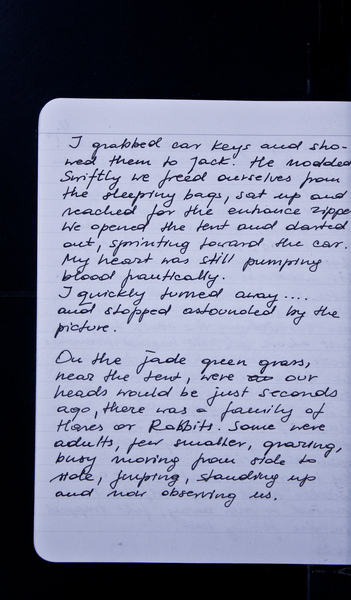 I grabbed car keys and sho-
wed them to Jack. He nodded
Swiftly we freed ourselves from
the sleeping bags, sat up and
reached for the entrance zippe
We opened the tent and darted
out, sprinting toward the car.
My heart was still pumping
blood frantically.
I quickly turned away....
and stopped astounded by the
picture.
On the jade green grass,
near the tent, were our
heads would be just seconds
ago, there was a family of
Hares or Rabbits. Some were
adults, few smaller, grazing,
busy moving from side to
side, jumping, standing up
and now observing us.